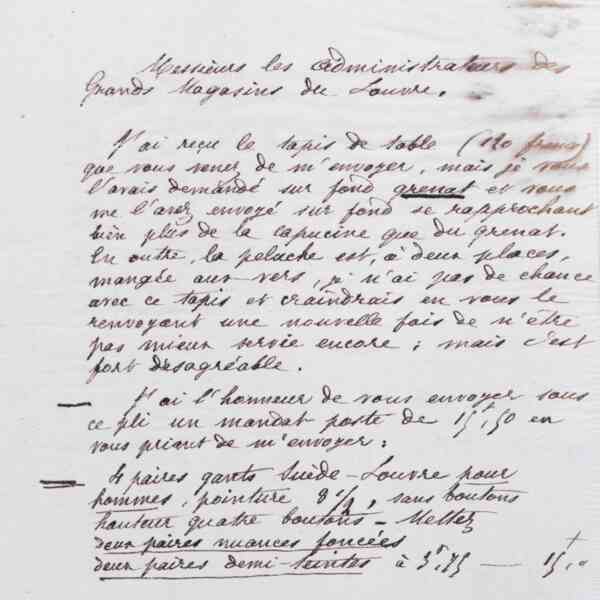 Messieurs les administrateurs des
Grands Magasins du Louvre.
J'ai reçu le tapis de table (120 francs)
que vous venez de m'envoyer, mais je vous
l'avais demandé sur fond grenat et vous
me l'avez envoyé sur fond se rapprochant
bien plus de la capucine que du grenat.
En outre, la peluche est, à deux places,
mangée aux vers, je n'ai pas de chance
avec ce tapis et craindrais en vous le
renvoyant une nouvelle fois de n'être
pas mieux servie encore ; mais c'est
fort désagréable.
— J'ai l'honneur de vous envoyer sous
ce pli un mandat poste de 15f,50 en
vous priant de m'envoyer :
4 paires gants Suède-Louvre pour
hommes, pointure 8 1/2, sans boutons
hauteur quatre boutons — Mettez
deux paires nuances foncées
deux paires demi-teintes à 3f,75 — 15f,"